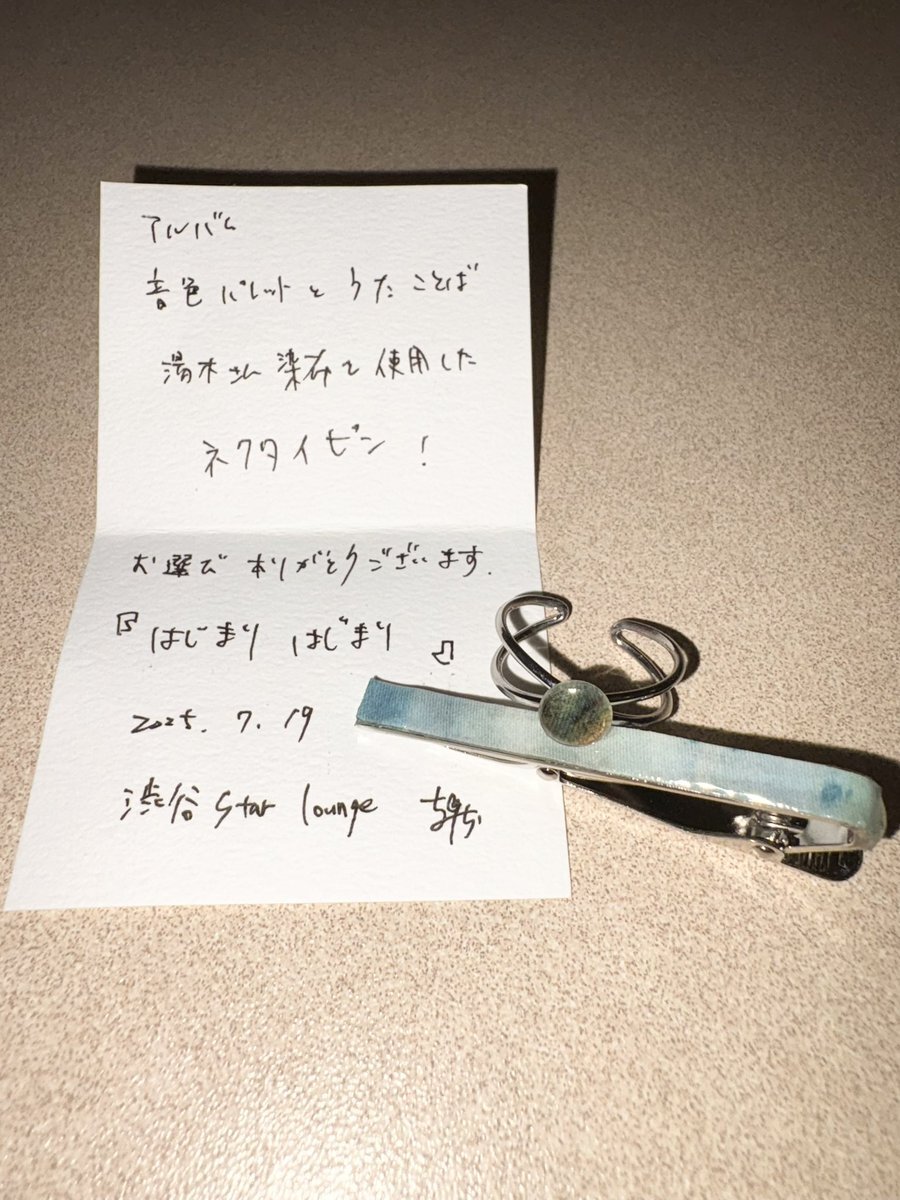 アルバム
音色パレットとうたことば
湯木さん染布を使用した
ネクタイピン!
お選びありがとうございます.
『はじまりはじまり』
2025. 7. 19
渋谷 Star lounge